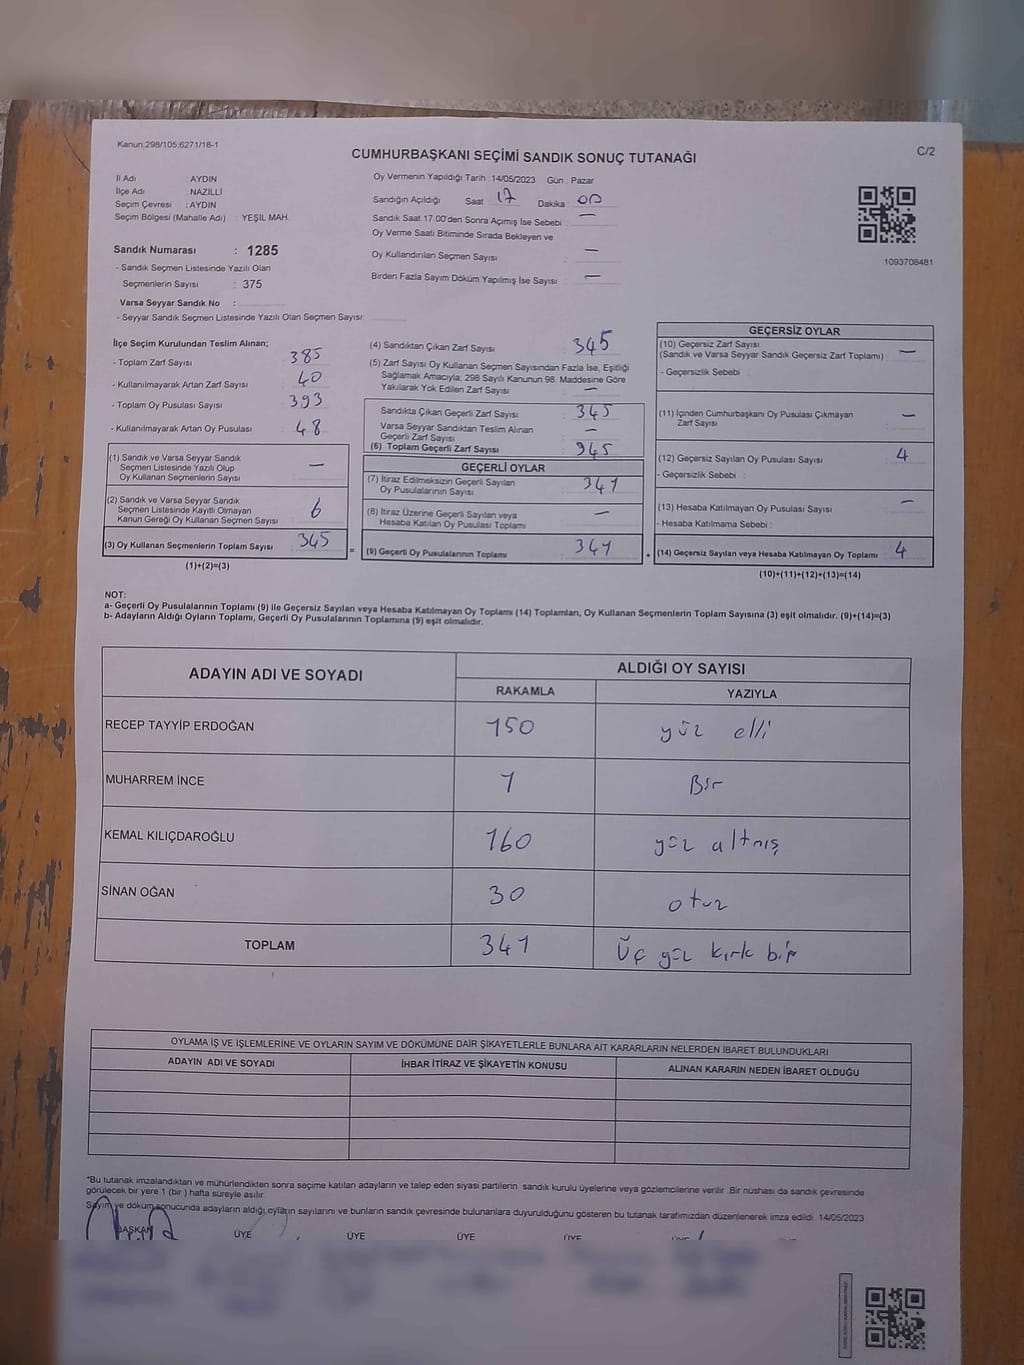 Kanun;298/105;6271/18-1
C/2
CUMHURBAŞKANI SEÇİMİ SANDIK SONUÇ TUTANAĞI
İl Adı AYDIN
İlçe Adı NAZİLLİ
Seçim Çevresi : AYDIN
Seçim Bölgesi (Mahalle Adı) : YEŞİL MAH.
Sandık Numarası : 1285
- Sandık Seçmen Listesinde Yazılı Olan
Seçmenlerin Sayısı : 375
Varsa Seyyar Sandık No :
- Seyyar Sandık Seçmen Listesinde Yazılı Olan Seçmen Sayısı:
Oy Vermenin Yapıldığı Tarih :14/05/2023 Gün : Pazar
Sandığın Açıldığı Saat 17 Dakika 00
Sandık Saat 17:00'den Sonra Açımış İse Sebebi : —
Oy Verme Saati Bitiminde Sırada Bekleyen ve
Oy Kullandırılan Seçmen Sayısı : —
Birden Fazla Sayım Döküm Yapılmış İse Sayısı : —
1093708481
İlçe Seçim Kurulundan Teslim Alınan;
- Toplam Zarf Sayısı 385
- Kullanılmayarak Artan Zarf Sayısı 40
- Toplam Oy Pusulası Sayısı 393
- Kullanılmayarak Artan Oy Pusulası 48
(1) Sandık ve Varsa Seyyar Sandık
Seçmen Listesinde Yazılı Olup
Oy Kullanan Seçmenlerin Sayısı —
(2) Sandık ve Varsa Seyyar Sandık
Seçmen Listesinde Kayıtlı Olmayan
Kanun Gereği Oy Kullanan Seçmen Sayısı 6
(3) Oy Kullanan Seçmenlerin Toplam Sayısı 345
(1)+(2)=(3)
(4) Sandıktan Çıkan Zarf Sayısı 345
(5) Zarf Sayısı Oy Kullanan Seçmen Sayısından Fazla İse, Eşitliği
Sağlamak Amacıyla; 298 Sayılı Kanunun 98. Maddesine Göre
Yakılarak Yok Edilen Zarf Sayısı —
Sandıkta Çıkan Geçerli Zarf Sayısı 345
Varsa Seyyar Sandıktan Teslim Alınan
Geçerli Zarf Sayısı —
(6) Toplam Geçerli Zarf Sayısı 345
GEÇERLİ OYLAR
(7) İtiraz Edilmeksizin Geçerli Sayılan
Oy Pusulalarının Sayısı 341
(8) İtiraz Üzerine Geçerli Sayılan veya
Hesaba Katılan Oy Pusulası Toplamı —
= (9) Geçerli Oy Pusulalarının Toplamı 341 +
GEÇERSİZ OYLAR
(10) Geçersiz Zarf Sayısı
(Sandık ve Varsa Seyyar Sandık Geçersiz Zarf Toplamı) —
- Geçersizlik Sebebi :
(11) İçinden Cumhurbaşkanı Oy Pusulası Çıkmayan
Zarf Sayısı —
(12) Geçersiz Sayılan Oy Pusulası Sayısı 4
- Geçersizlik Sebebi :
(13) Hesaba Katılmayan Oy Pusulası Sayısı —
- Hesaba Katılmama Sebebi :
(14) Geçersiz Sayılan veya Hesaba Katılmayan Oy Toplamı 4
(10)+(11)+(12)+(13)=(14)
NOT:
a- Geçerli Oy Pusulalarının Toplamı (9) ile Geçersiz Sayılan veya Hesaba Katılmayan Oy Toplamı (14) Toplamları, Oy Kullanan Seçmenlerin Toplam Sayısına (3) eşit olmalıdır. (9)+(14)=(3)
b- Adayların Aldığı Oyların Toplamı, Geçerli Oy Pusulalarının Toplamına (9) eşit olmalıdır.
ADAYIN ADI VE SOYADI ALDIĞI OY SAYISI
RAKAMLA YAZIYLA
RECEP TAYYİP ERDOĞAN 150 yüz elli
MUHARREM İNCE 1 Bir
KEMAL KILIÇDAROĞLU 160 yüz altmış
SİNAN OĞAN 30 otuz
TOPLAM 341 Üç yüz kırk bir
OYLAMA İŞ VE İŞLEMLERİNE VE OYLARIN SAYIM VE DÖKÜMÜNE DAİR ŞİKAYETLERLE BUNLARA AİT KARARLARIN NELERDEN İBARET BULUNDUKLARI
ADAYIN ADI VE SOYADI İHBAR İTİRAZ VE ŞİKAYETİN KONUSU ALINAN KARARIN NEDEN İBARET OLDUĞU
*Bu tutanak imzalandıktan ve mühürlendikten sonra seçime katılan adayların ve talep eden siyasi partilerin sandık kurulu üyelerine veya gözlemcilerine verilir .Bir nüshası da sandık çevresinde
görülecek bir yere 1 (bir ) hafta süreyle asılır.
Sayım ve döküm sonucunda adayların aldığı oyların sayılarını ve bunların sandık çevresinde bulunanlara duyurulduğunu gösteren bu tutanak tarafımızdan düzenlenerek imza edildi. 14/05/2023
BAŞKAN ÜYE ÜYE ÜYE ÜYE